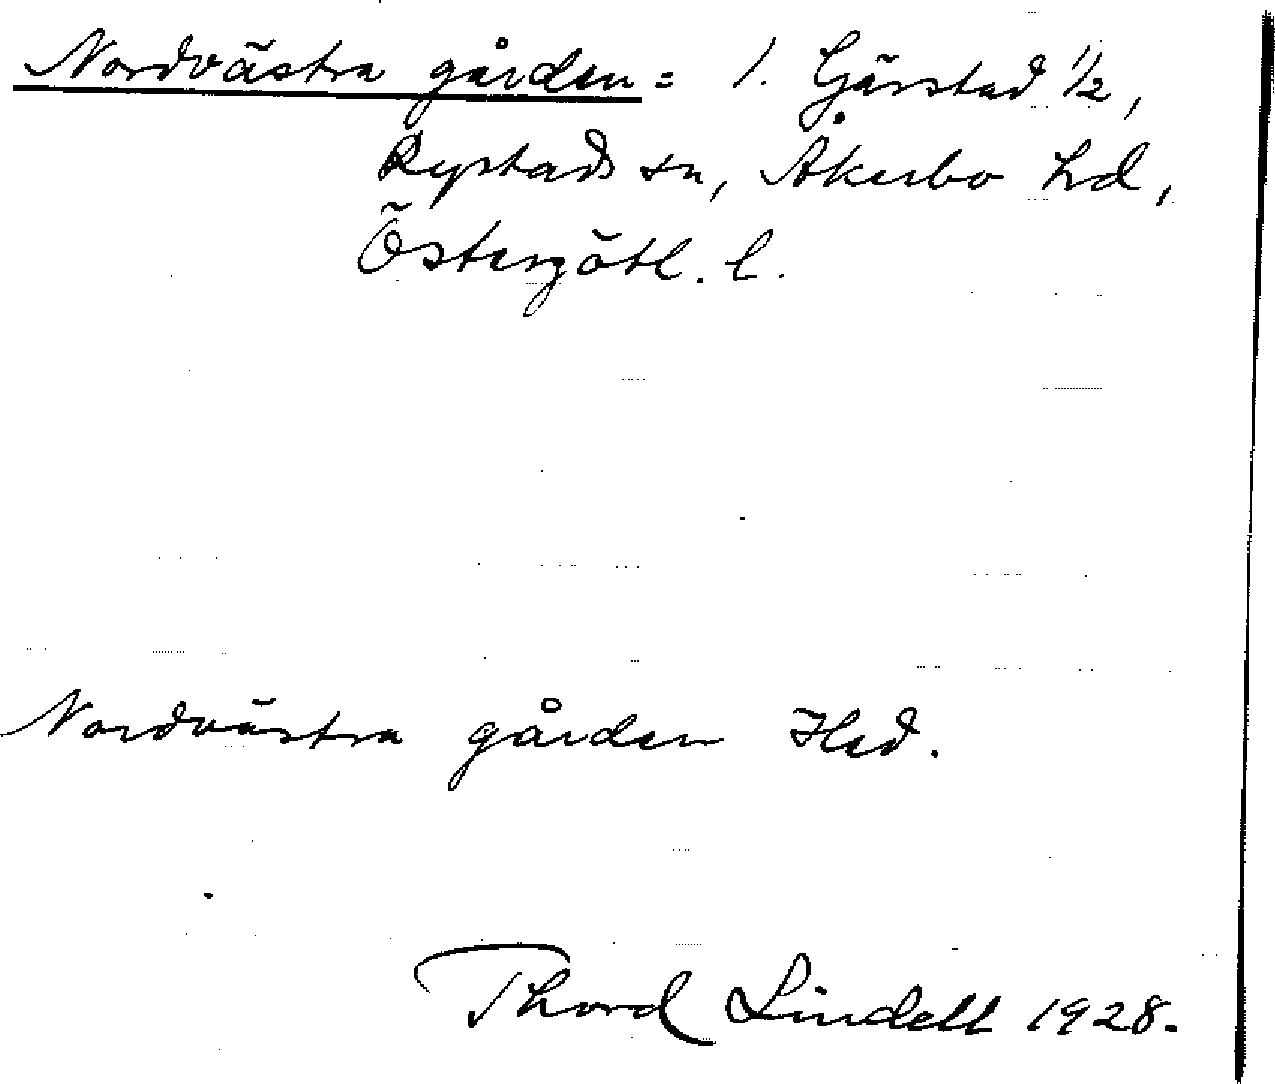 Nordvästra gården = 1. Gärstad 1/2,
Rystads sn, Åkerbo hd,
Östergötl. l.
Nordvästra gården
Thord Lindell 1928.